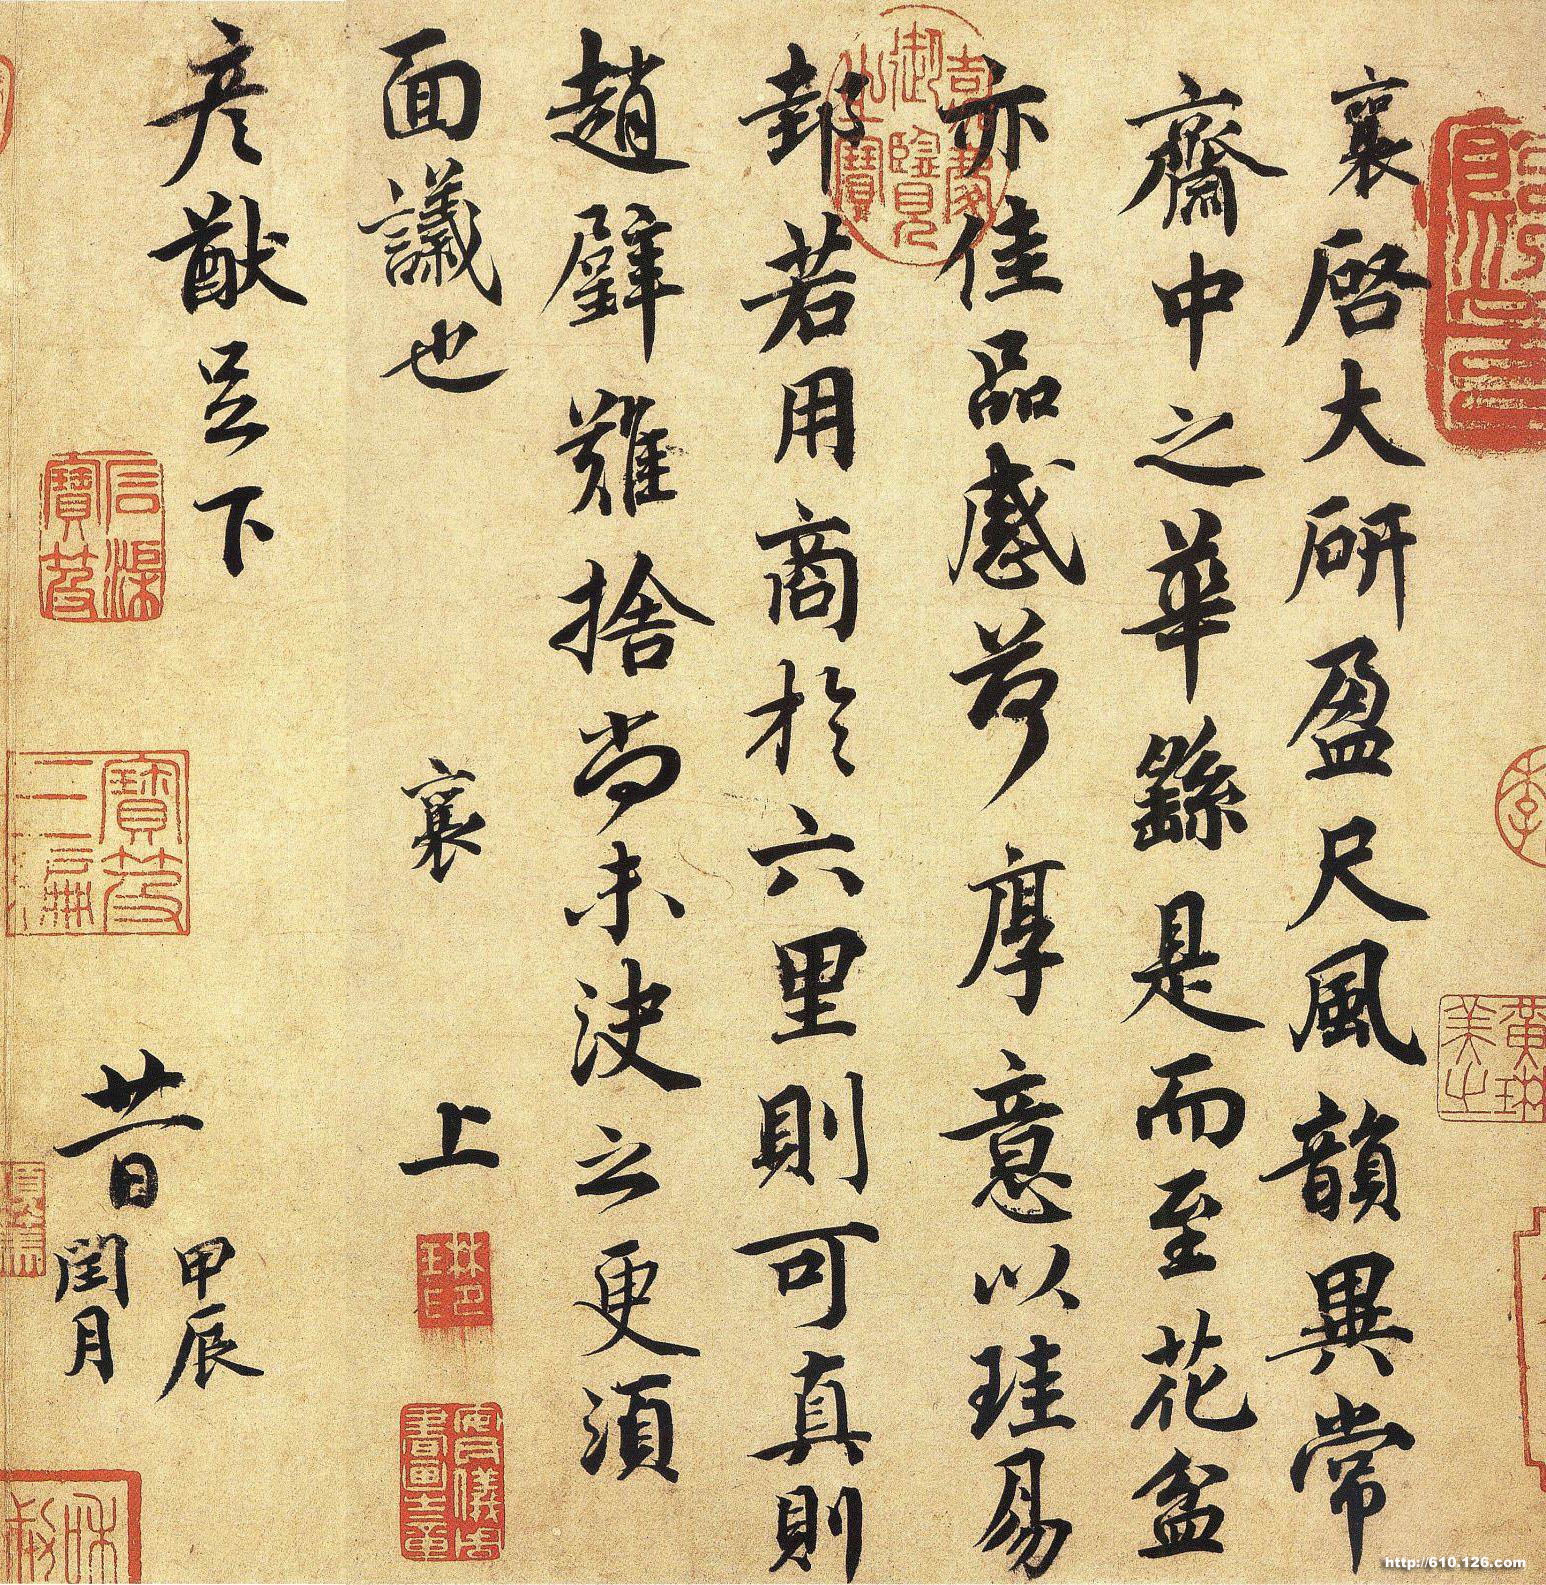 襄啓大研盈尺風韻異常
齋中之華繇是而至花盆
亦佳品感荷厚意以珪易
邽若用商於六里則可真則
趙璧難捨尚未決之更須
面議也 襄 上
彦猷足下
廿一日 甲辰
閏月
嘉慶御覽之寶
http://610.126.com